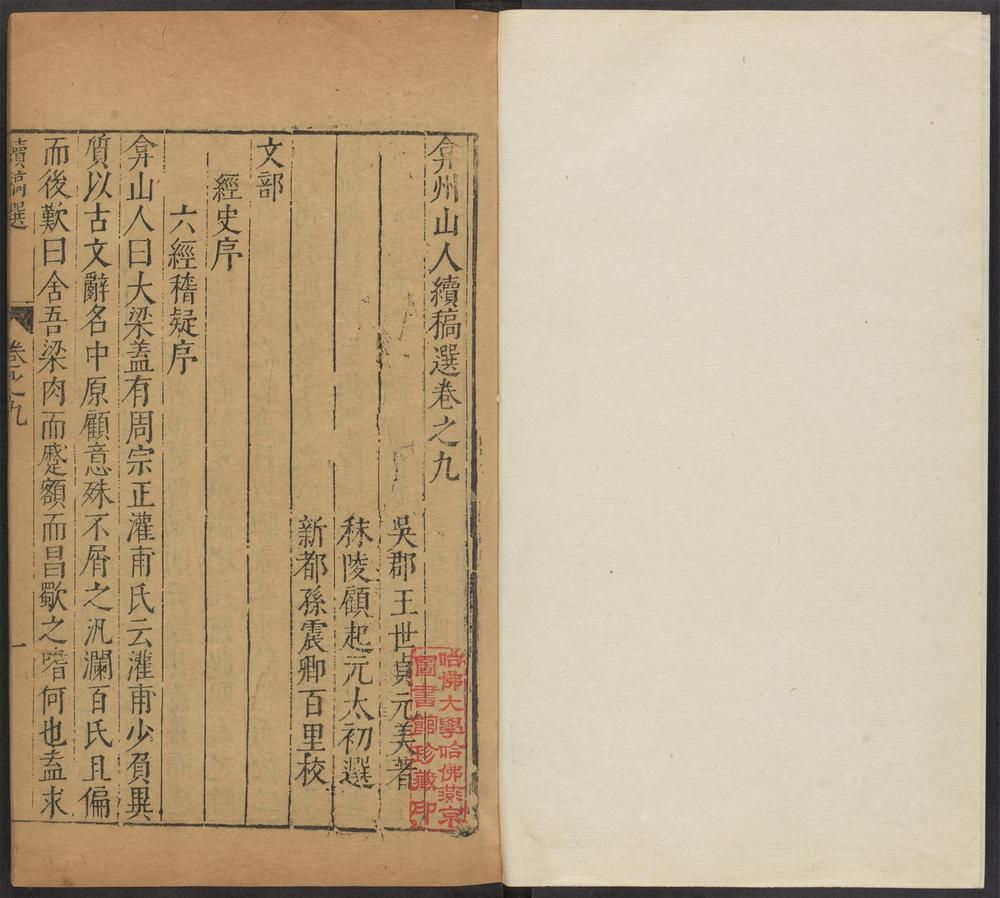 弇州山人續稿選卷之九
吳郡王世貞元美著
秣陵顧起元太初選
新都孫震卿百里校
文部
經史序
六經稽疑序
弇山人曰大梁蓋有周宗正灌甫氏云灌甫少負異
質以古文辭名中原顧意殊不屑之汎瀾百氏且偏
而後歎曰舍吾梁肉而蹙額而昌歜之嗜何也盍求
續稿選
卷之九
一
哈佛大學哈佛燕京
圖書館珍藏印